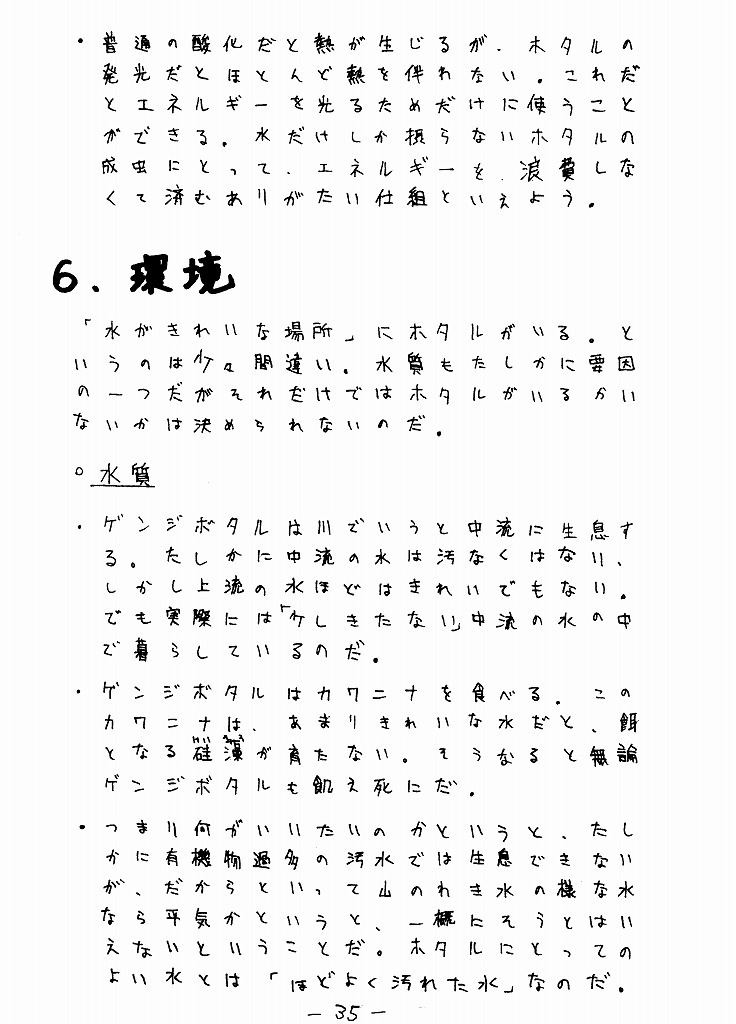 ・普通の酸化だと熱が生じるが、ホタルの
発光だとほとんど熱を伴わない。これだ
とエネルギーを光るためだけに使うこと
ができる。水だけしか摂らないホタルの
成虫にとって、エネルギーを、浪費しな
くて済むありがたい仕組といえよう。
6. 環境
「水がきれいな場所」にホタルがいる。と
いうのは少々間違い。水質もたしかに要因
の一つだがそれだけではホタルがいるかい
ないかは決められないのだ。
○ 水質
・ゲンジボタルは川でいうと中流に生息す
る。たしかに中流の水は汚なくはない、
しかし上流の水ほどはきれいでもない。
でも実際には「少しきたない」中流の水の中
で暮らしているのだ。
・ゲンジボタルはカワニナを食べる。この
カワニナは、あまりきれいな水だと、餌
となる硅藻が育たない。そうなると無論
ゲンジボタルも飢え死にだ。
・つまり何がいいたいのかというと、たし
かに有機物過多の汚水では生息できない
が、だからといって山のわき水の様な水
なら平気かというと、一概にそうとはい
えないということだ。ホタルにとっての
よい水とは「ほどよく汚れた水」なのだ。
- 35 -